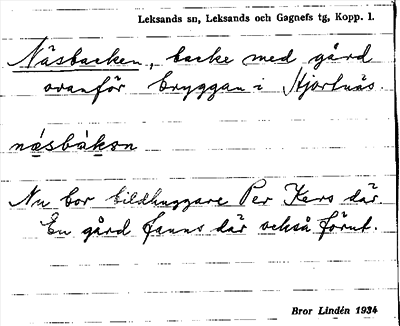 Leksands sn, Leksands och Gagnefs tg, Kopp. l.
Näsbacken, backe med gård
ovanför bryggan i Hjortnäs.
nä̀sbàkən
Nu bor bildhuggare Per Kers där.
En gård fanns där också förut.
Bror Lindén 1934